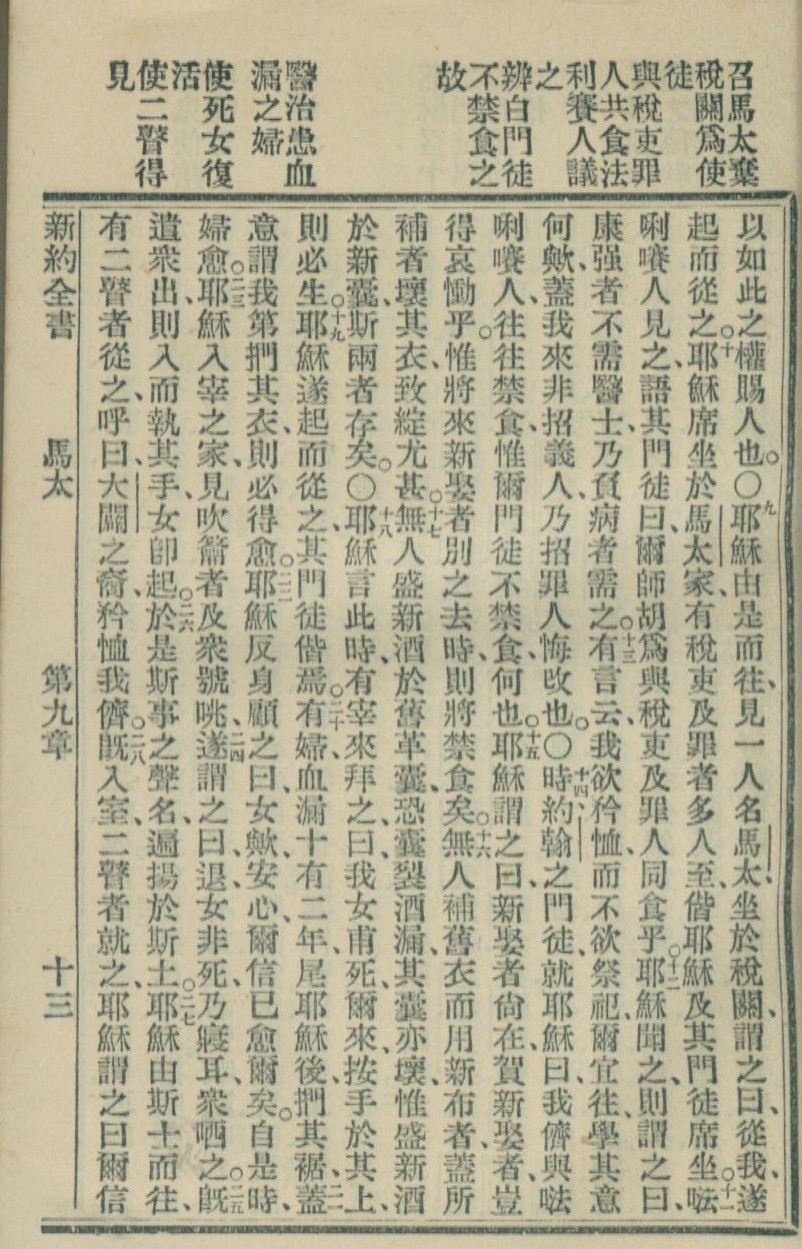 召馬太棄
稅關爲使
徒
與稅吏罪
人共食法
利賽人議
之
辨白門徒
不禁食之
故
醫治患血
漏之婦
使死女復
活
使二瞽得
見
以如此之權賜人也〇九耶穌由是而往、見一人名馬太、坐於稅關、謂之曰、從我、遂
起而從之。十耶穌席坐於馬太家、有稅吏及罪者多人至、偕耶穌及其門徒席坐。十一𠵽
唎嚽人見之、語其門徒曰、爾師胡爲與稅吏及罪人同食乎。十二耶穌聞之、則謂之曰、
康强者不需醫士、乃負病者需之。十三有言云、我欲矜恤、而不欲祭祀、爾宜往學其意
何歟、蓋我來非招義人、乃招罪人悔改也。〇十四時約翰之門徒、就耶穌曰、我儕與𠵽
唎嚽人、往往禁食、惟爾門徒不禁食、何也。十五耶穌謂之曰、新娶者尙在、賀新娶者、豈
得哀慟乎。惟將來新娶者別之去時、則將禁食矣。十六無人補舊衣而用新布者、蓋所
補者壞其衣、致綻尤甚。十七無人盛新酒於舊革囊、恐囊裂酒漏、其囊亦壞、惟盛新酒
於新囊、斯兩者存矣。〇十八耶穌言此時、有宰來拜之、曰、我女甫死、爾來、按手於其上、
則必生。十九耶穌遂起而從之、其門徒偕焉。二十有婦、血漏十有二年、尾耶穌後、捫其裾、二一蓋
意謂我第捫其衣、則必得愈。二二耶穌反身顧之曰、女歟、安心、爾信已愈爾矣。自是時、
婦愈。二三耶穌入宰之家、見吹籥者及衆號咷、二四遂謂之曰、退、女非死、乃寢耳、衆哂之。二五旣
遣衆出、則入而執其手、女卽起。二六於是斯事之聲名、遍揚於斯土。二七耶穌由斯土而往、
有二瞽者從之、呼曰、大闢之裔、矜恤我儕。二八旣入室、二瞽者就之、耶穌謂之曰、爾信
新約全書　馬太　第九章　十三